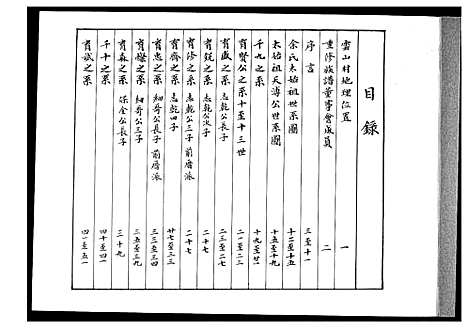 目錄
雲山村地理位置 一
重修族譜董事會成員 二
序言 三至十一
余氏太始祖世系圖 十二至十五
太始祖天溥公世系圖 十五至十九
千九之系 十九至廿一
育賢公之系 十至十三世 二一至二三
育盛之系 志乾公長子 二三至二七
育銳之系 志乾公次子 二十七
育修之系 志乾公三子 前厝派 二十七
育齋之系 志乾四子 廿七至三三
育忠之系 細哥公長子 前厝派 三三至三四
育燦之系 細哥公三子 三五至三九
育森之系 保全公長子 三十九
千十之系 四十至四一
育斌之系 四一至五一